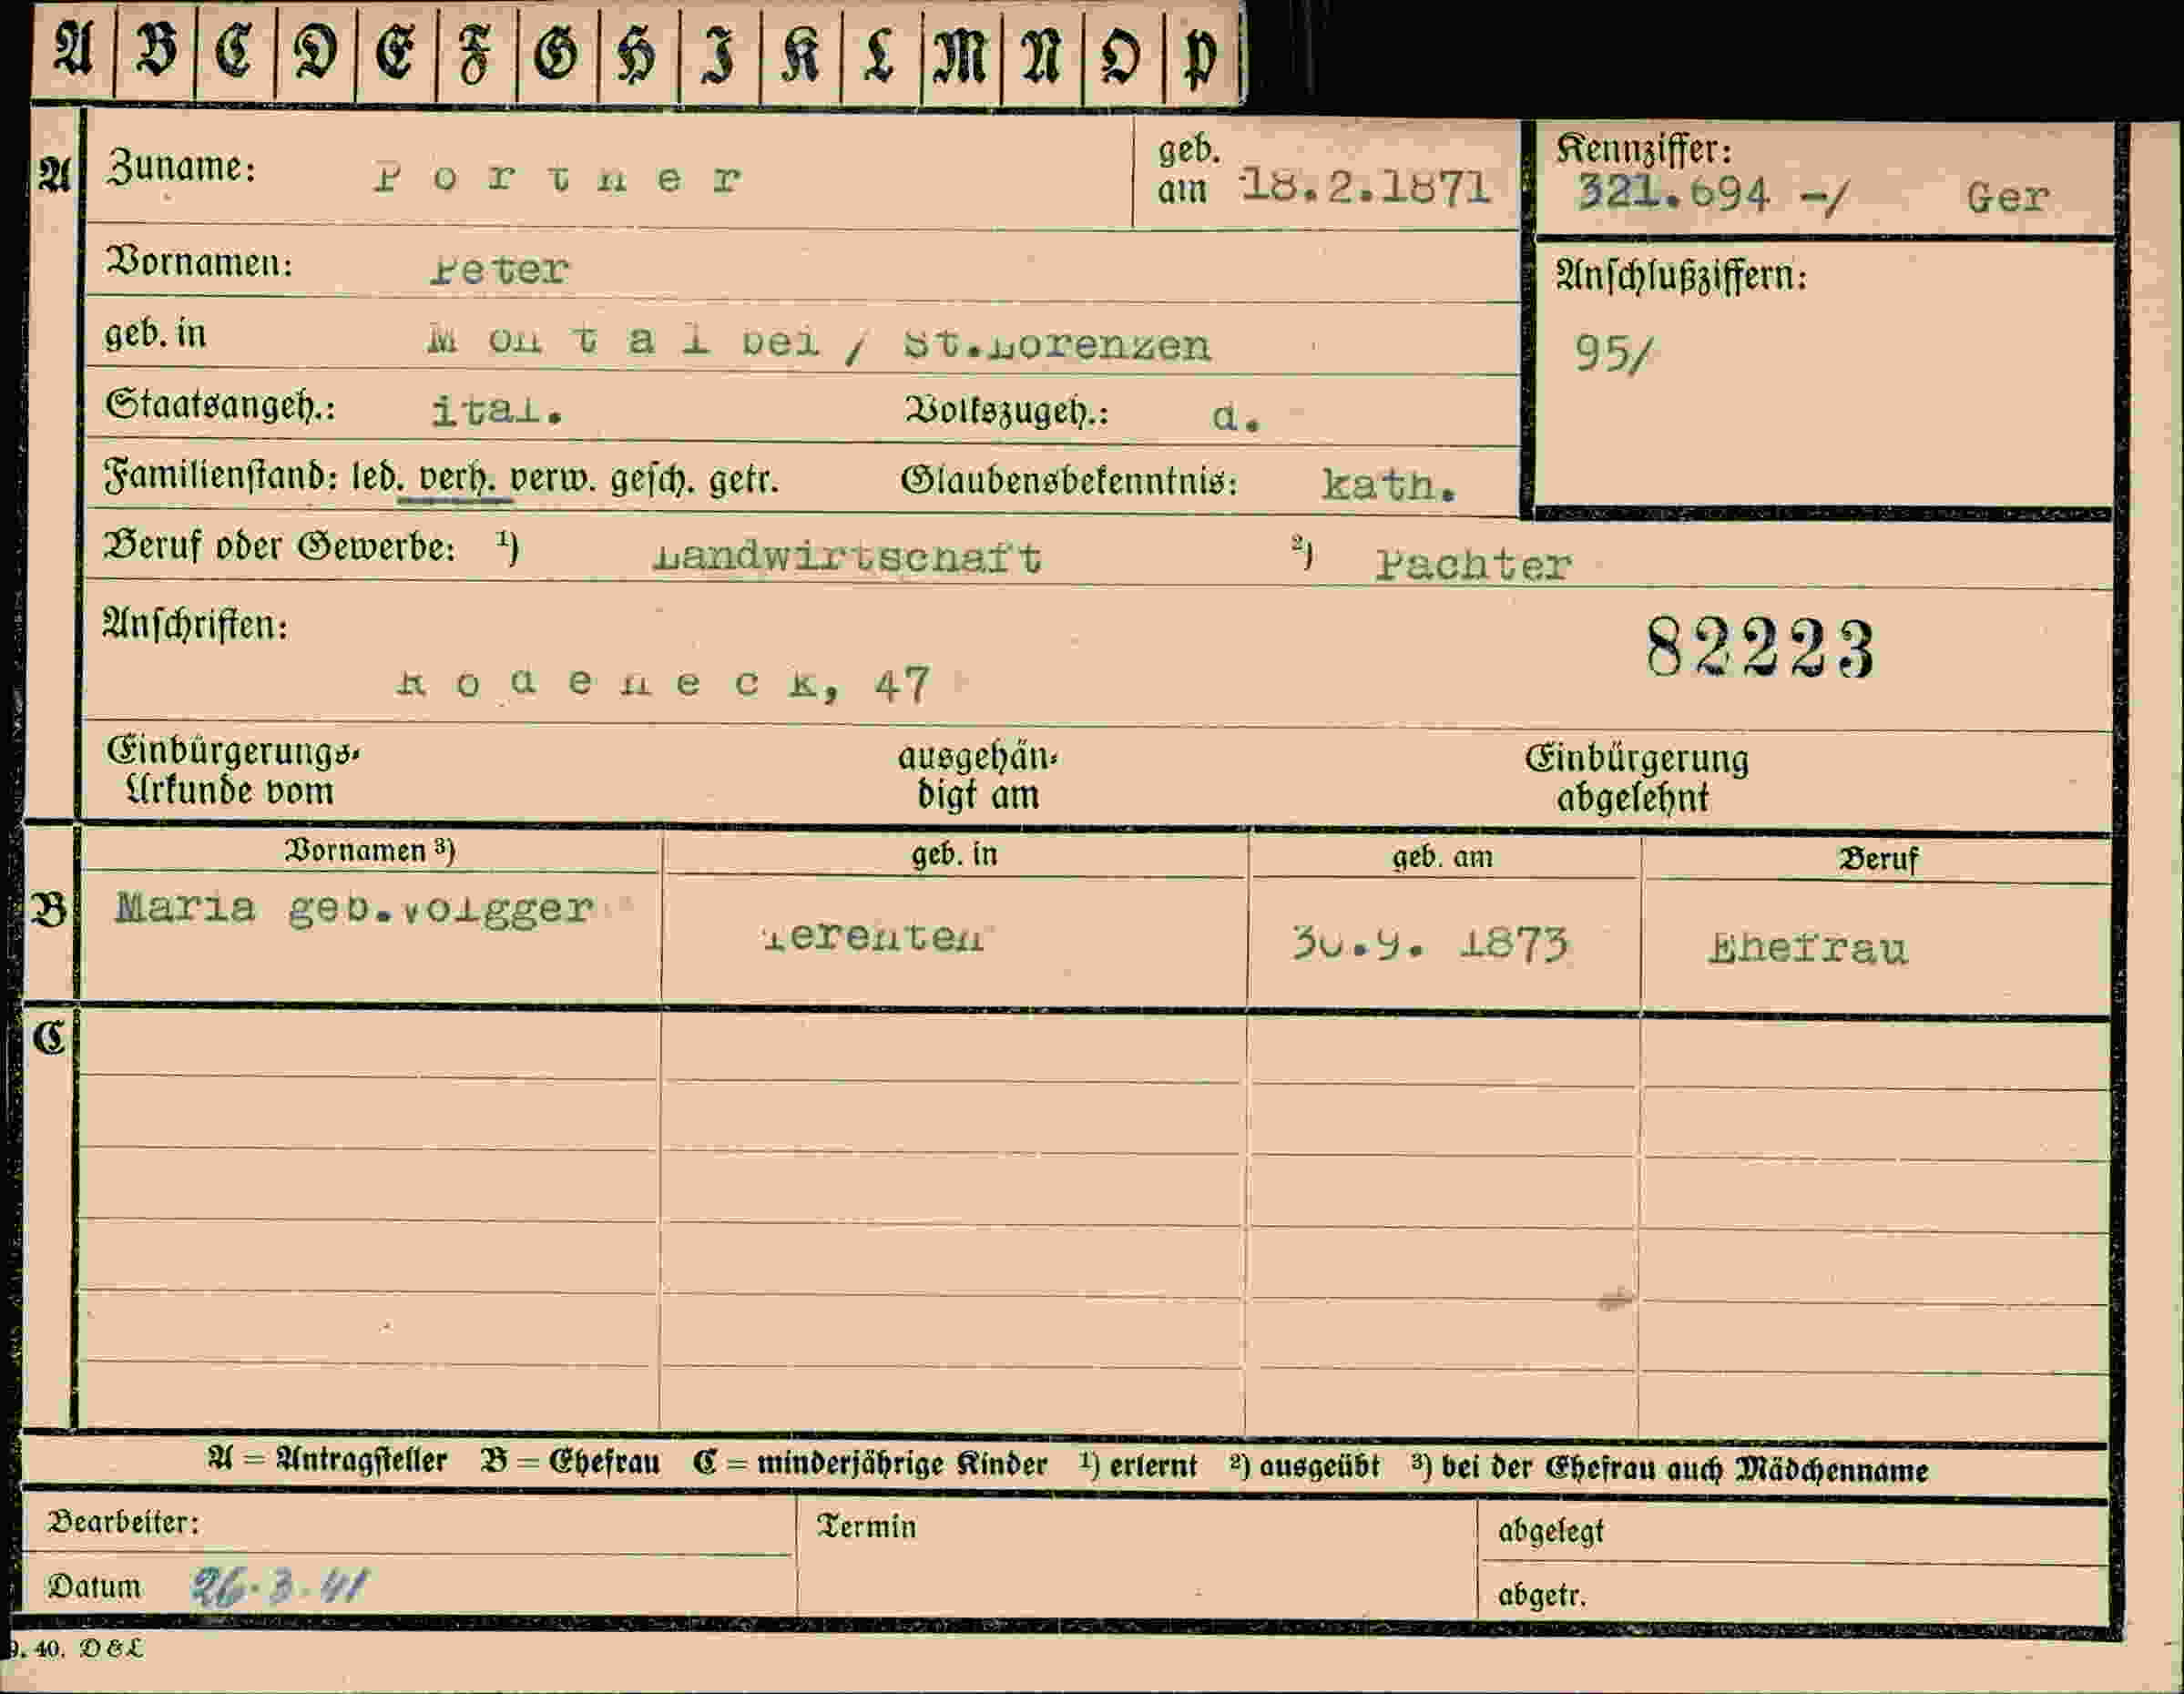 A B C D E F G H I K L M N O P
A Zuname: Portner geb. am 18.2.1871 Kennziffer: 321.694 -/ Ger
Vornamen: Peter Anschlußziffern:
geb. in Montal bei / St.Lorenzen 95/
Staatsangeh.: ital. Volkszugeh.: d.
Familienstand: led. verh. verw. gesch. getr. Glaubensbekenntnis: kath.
Beruf oder Gewerbe: 1) Landwirtschaft 2) Pachter
Anschriften: 82223
Rodeneck, 47
Einbürgerungs- ausgehän- Einbürgerung
Urkunde vom digt am abgelehnt
Vornamen 3) geb. in geb. am Beruf
B Maria geb.Volgger Terenten 30.9. 1873 Ehefrau
C
A = Antragsteller B = Ehefrau C = minderjährige Kinder 1) erlernt 2) ausgeübt 3) bei der Ehefrau auch Mädchenname
Bearbeiter: Termin abgelegt
Datum 26.3.41 abgetr.
9. 40. D&L